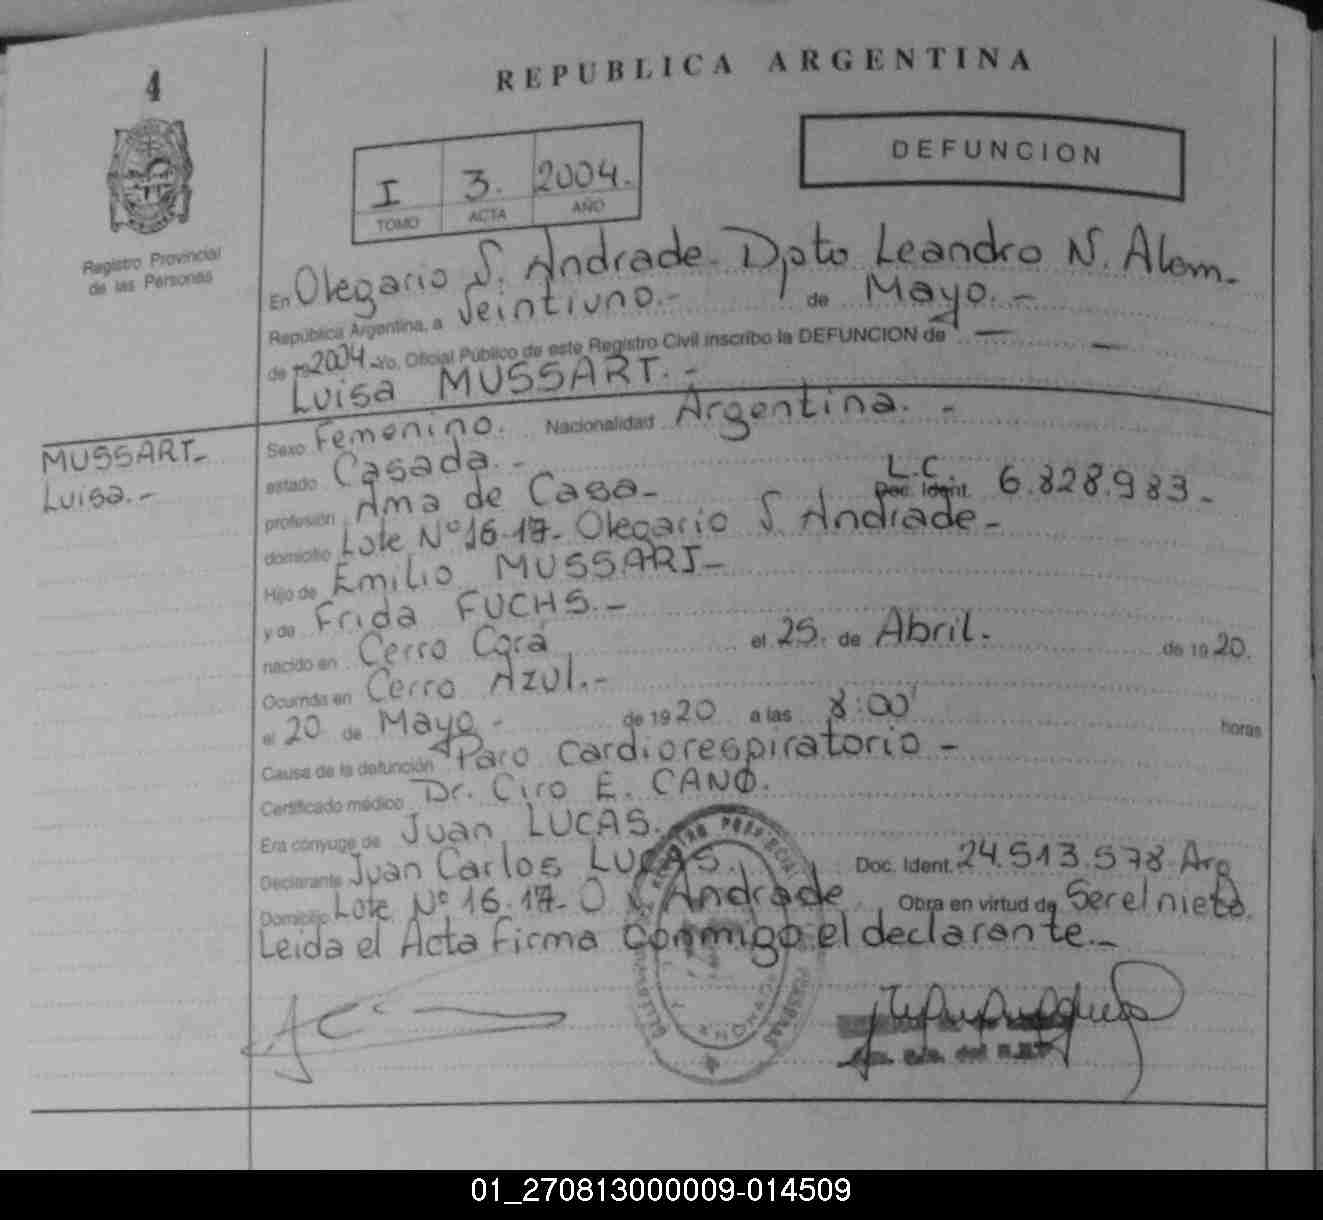 4
REPUBLICA ARGENTINA
I 3. 2004.
TOMO ACTA AÑO
DEFUNCION
Registro Provincial
de las Personas
En Olegario S. Andrade. Dpto Leandro N. Alem.-
República Argentina, a Veintiuno.- de Mayo.-
de 19 2004 -Yo, Oficial Público de este Registro Civil inscribo la DEFUNCION de - -
Luisa MUSSART.-
MUSSART-
Luisa.-
Sexo Femenino. Nacionalidad Argentina. -
estado Casada.-
profesión Ama de Casa- L.C. Doc. Ident. 6.828.983-
domicilio Lote Nº 16-17- Olegario S. Andrade-
Hijo de Emilio MUSSART-
y de Frida FUCHS.-
nacido en Cerro Corá el 25. de Abril. de 19 20.
Ocurrida en Cerro Azul.-
el 20 de Mayo - de 19 20 a las 8:00' horas
Causa de la defunción Paro cardiorespiratorio -
Certificado médico Dr. Ciro E. CANO.
Era cónyuge de Juan LUCAS.
Declarante Juan Carlos LUCAS. Doc. Ident. 24.513.578 Arg
Domicilio Lote Nº 16-17- O S. Andrade Obra en virtud de Ser el nieto.
Leida el Acta firma conmigo el declarante.-
01_270813000009-014509